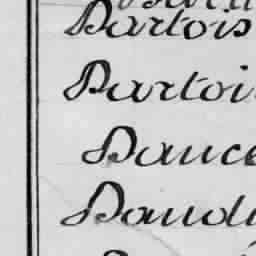 Bartois
Bartoi
Bauce
Baudu